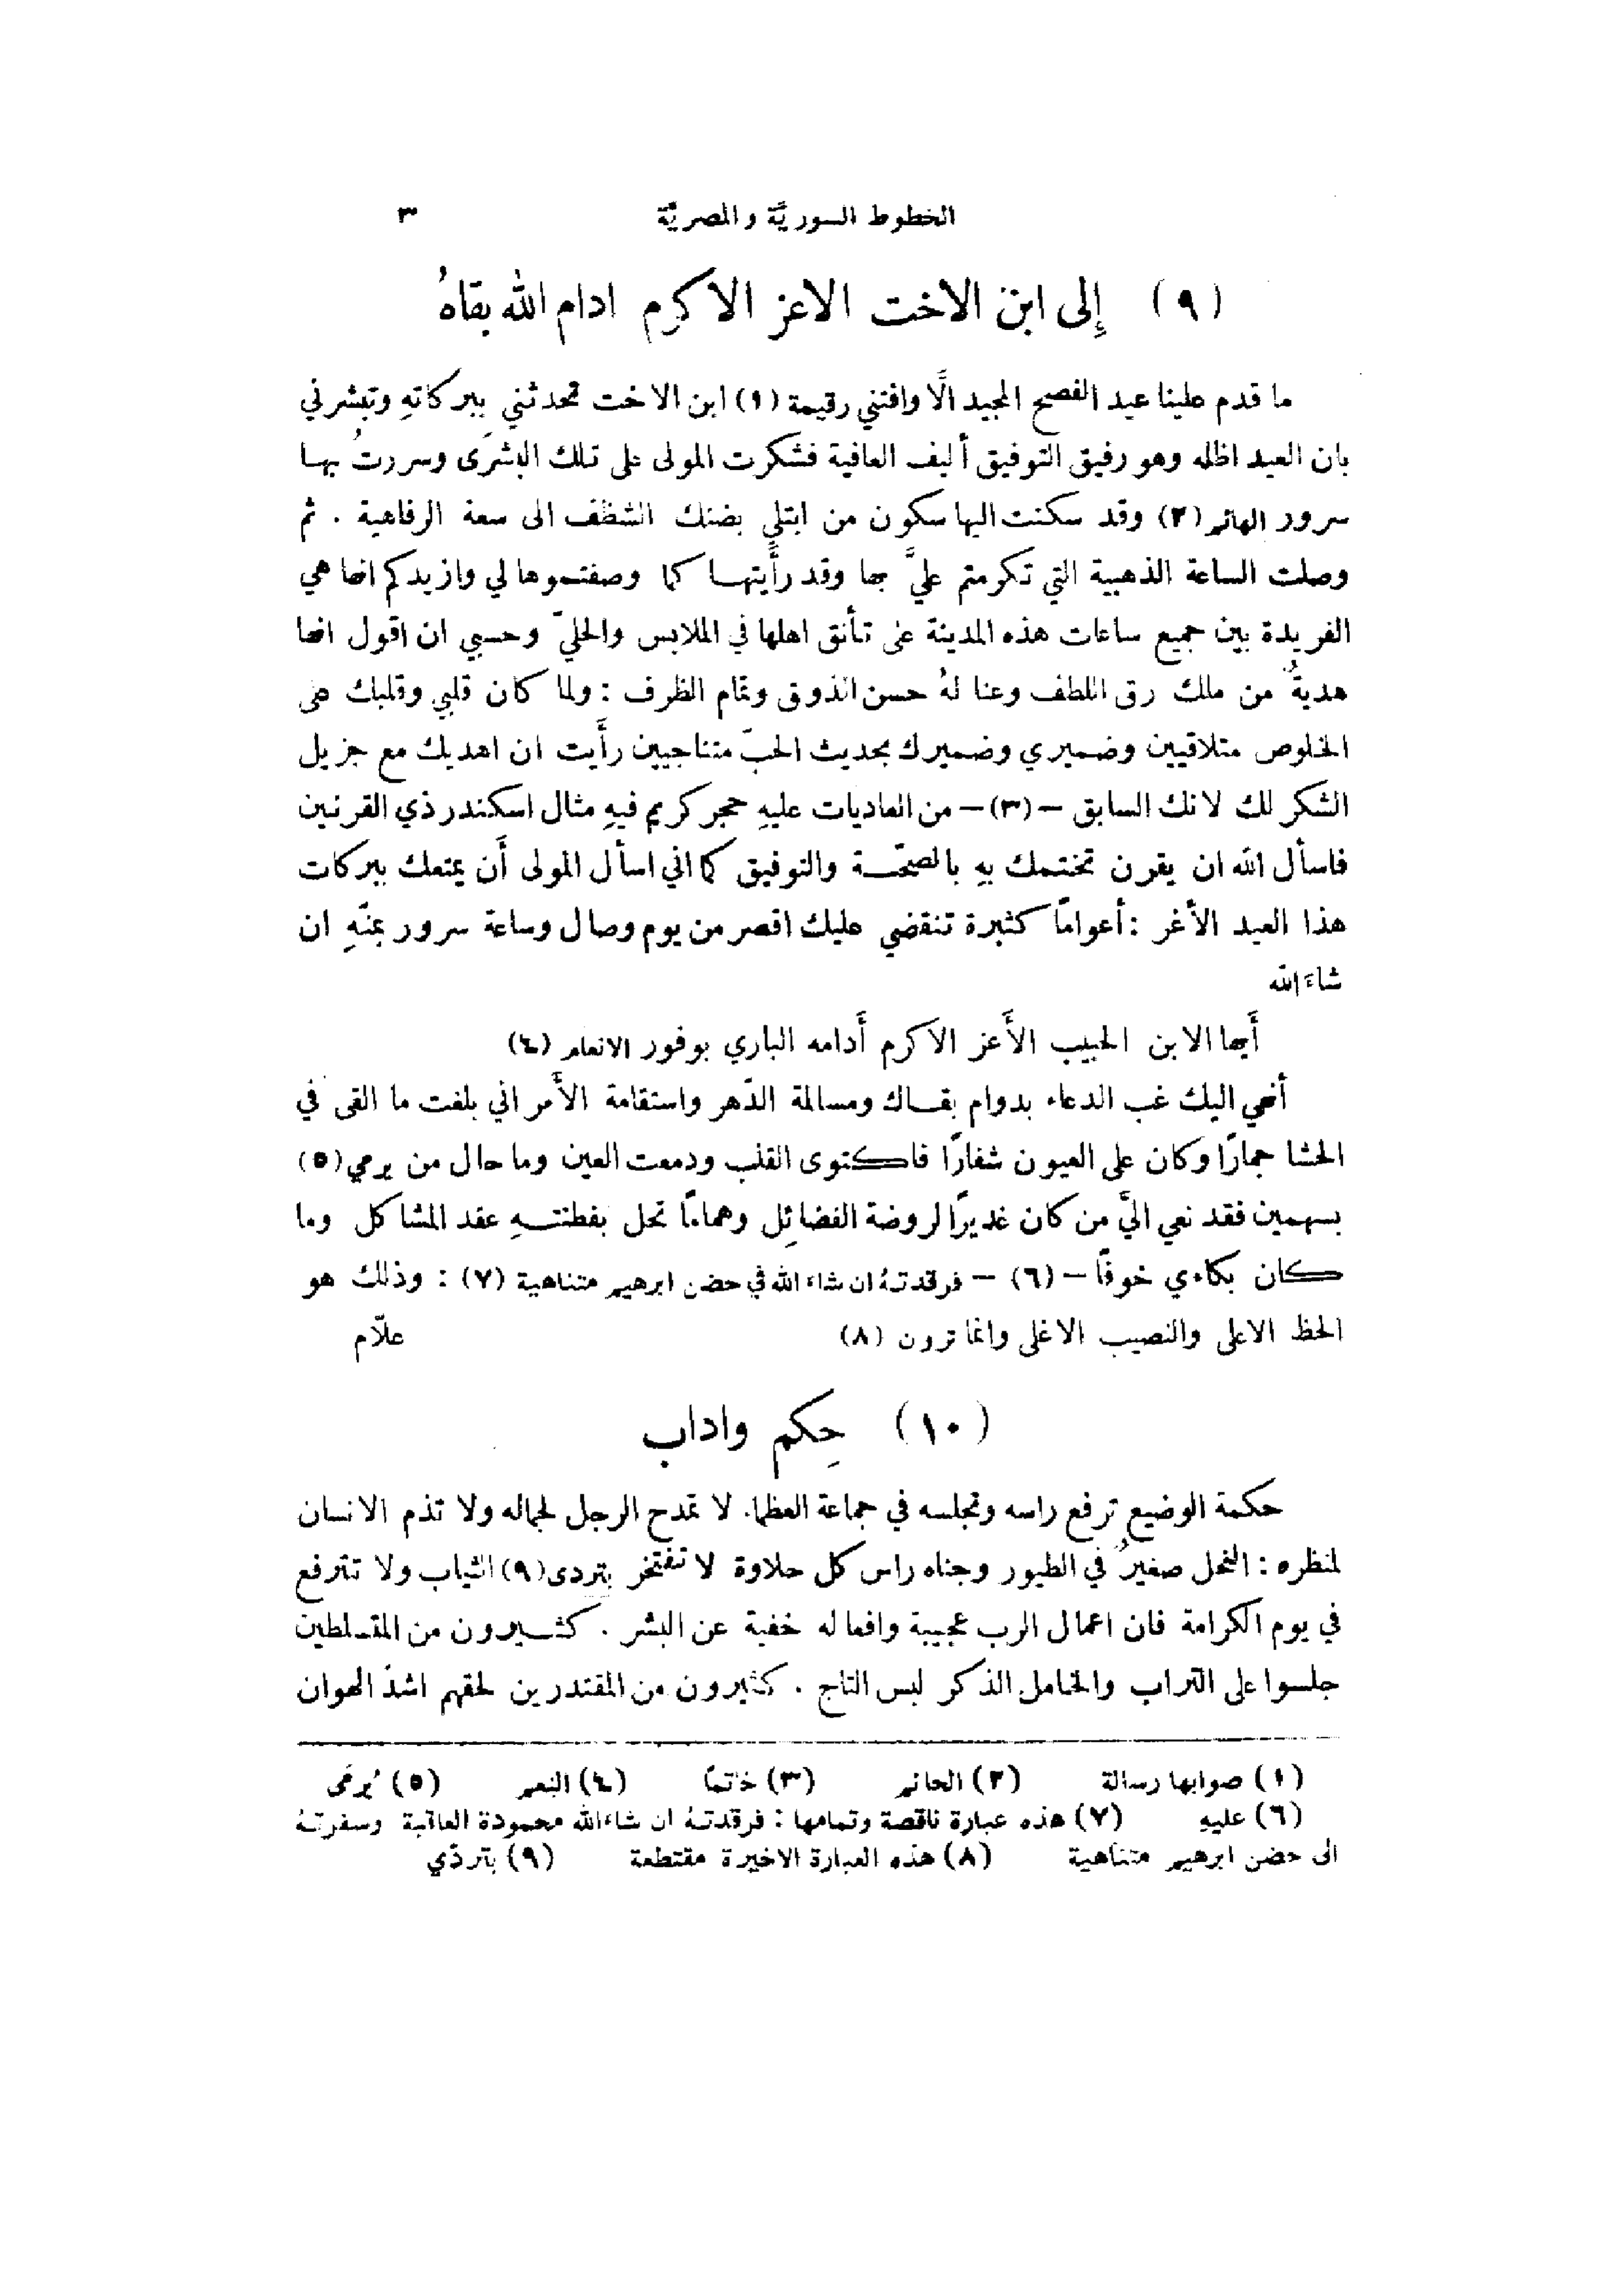 الخطوط السوريَّة والمصريَّة ٣
(٩) إِلى ابن الاخت الاعز الاكرم ادام الله بقاهُ
ما قدم علينا عيد الفصح المجيد الَّا وافتني رقيمة (١) ابن الاخت تحدثني ببركاتهِ وتبشرني
بان العيد اظله وهو رفيق التوفيق أليف العافية فشكرت المولى على تلك البشرَى وسررتُ بها
سرور الهائم (٢) وقد سكنت اليها سكون من ابتلي بضنك الشظف الى سعة الرفاهية . ثم
وصلت الساعة الذهبية التي تكرمتم عليَّ بها وقد رأَيتها كما وصفتموها لي وازيدكم انها هي
الفريدة بين جميع ساعات هذه المدينة على تأنق اهلها في الملابس والحليّ وحسبي ان اقول انها
هديةٌ من ملك رق اللطف وعنا لهُ حسن الذوق وتمام الظرف : ولما كان قلبي وقلبك على
الخلوص متلاقيين وضميري وضميرك بحديث الحبّ متناجيين رأَيت ان اهديك مع جزيل
الشكر لك لانك السابق – (٣) – من العاديات عليهِ حجر كريم فيهِ مثال اسكندر ذي القرنين
فاسأل الله ان يقرن تختمك بهِ بالصحّة والتوفيق كما اني اسأل المولى أَن يمتعك ببركات
هذا العيد الأَغر : أعوامًا كثيرة تنقضي عليك اقصر من يوم وصال وساعة سرور بمنّهِ ان
شاءَ الله
أَيها الابن الحبيب الأَعز الاكرم أَدامه الباري بوفور الانعام (٤)
أنهي اليك غب الدعاء بدوام بقاك ومسالمة الدّهر واستقامة الأَمر اني بلغت ما القى في
الحشا جمارًا وكان على العيون شفارًا فاكتوى القلب ودمعت العين وما حال من يرمي (٥)
بسهمين فقد نعي اليَّ من كان غديرًا لروضة الفضائِل وهمامًا تحل بفطنتهِ عقد المشاكل وما
كان بكاءي خوفًا – (٦) – فرقدتهُ ان شاء الله في حضن ابرهيم متناهية (٧) : وذلك هو
الحظ الاعلى والنصيب الاغلى وانما ترون (٨) علاّم
(١٠) حِكم واداب
حكمة الوضيع ترفع راسه وتجلسه في جماعة العظما. لا تمدح الرجل لجماله ولا تذم الانسان
لمنظره : النحل صغيرٌ في الطيور وجناه راس كل حلاوة لا تفتخر بتردى (٩) الثياب ولا تترفع
في يوم الكرامة فان اعمال الرب عجيبة وافعاله خفية عن البشر . كثيرون من المتسلطين
جلسوا على التراب والخامل الذكر لبس التاج . كثيرون من المقتدرين لحقهم اشدّ الهوان
(١) صوابها رسالة (٢) الحائم (٣) خاتمًا (٤) النعم (٥) يُرمَى
(٦) عليهِ (٧) هذه عبارة ناقصة وتمامها : فرقدتهُ ان شاءَ الله محمودة العاقبة وسفرتهُ
الى حضن ابرهيم متناهية (٨) هذه العبارة الاخيرة مقتطعة (٩) بتردّي